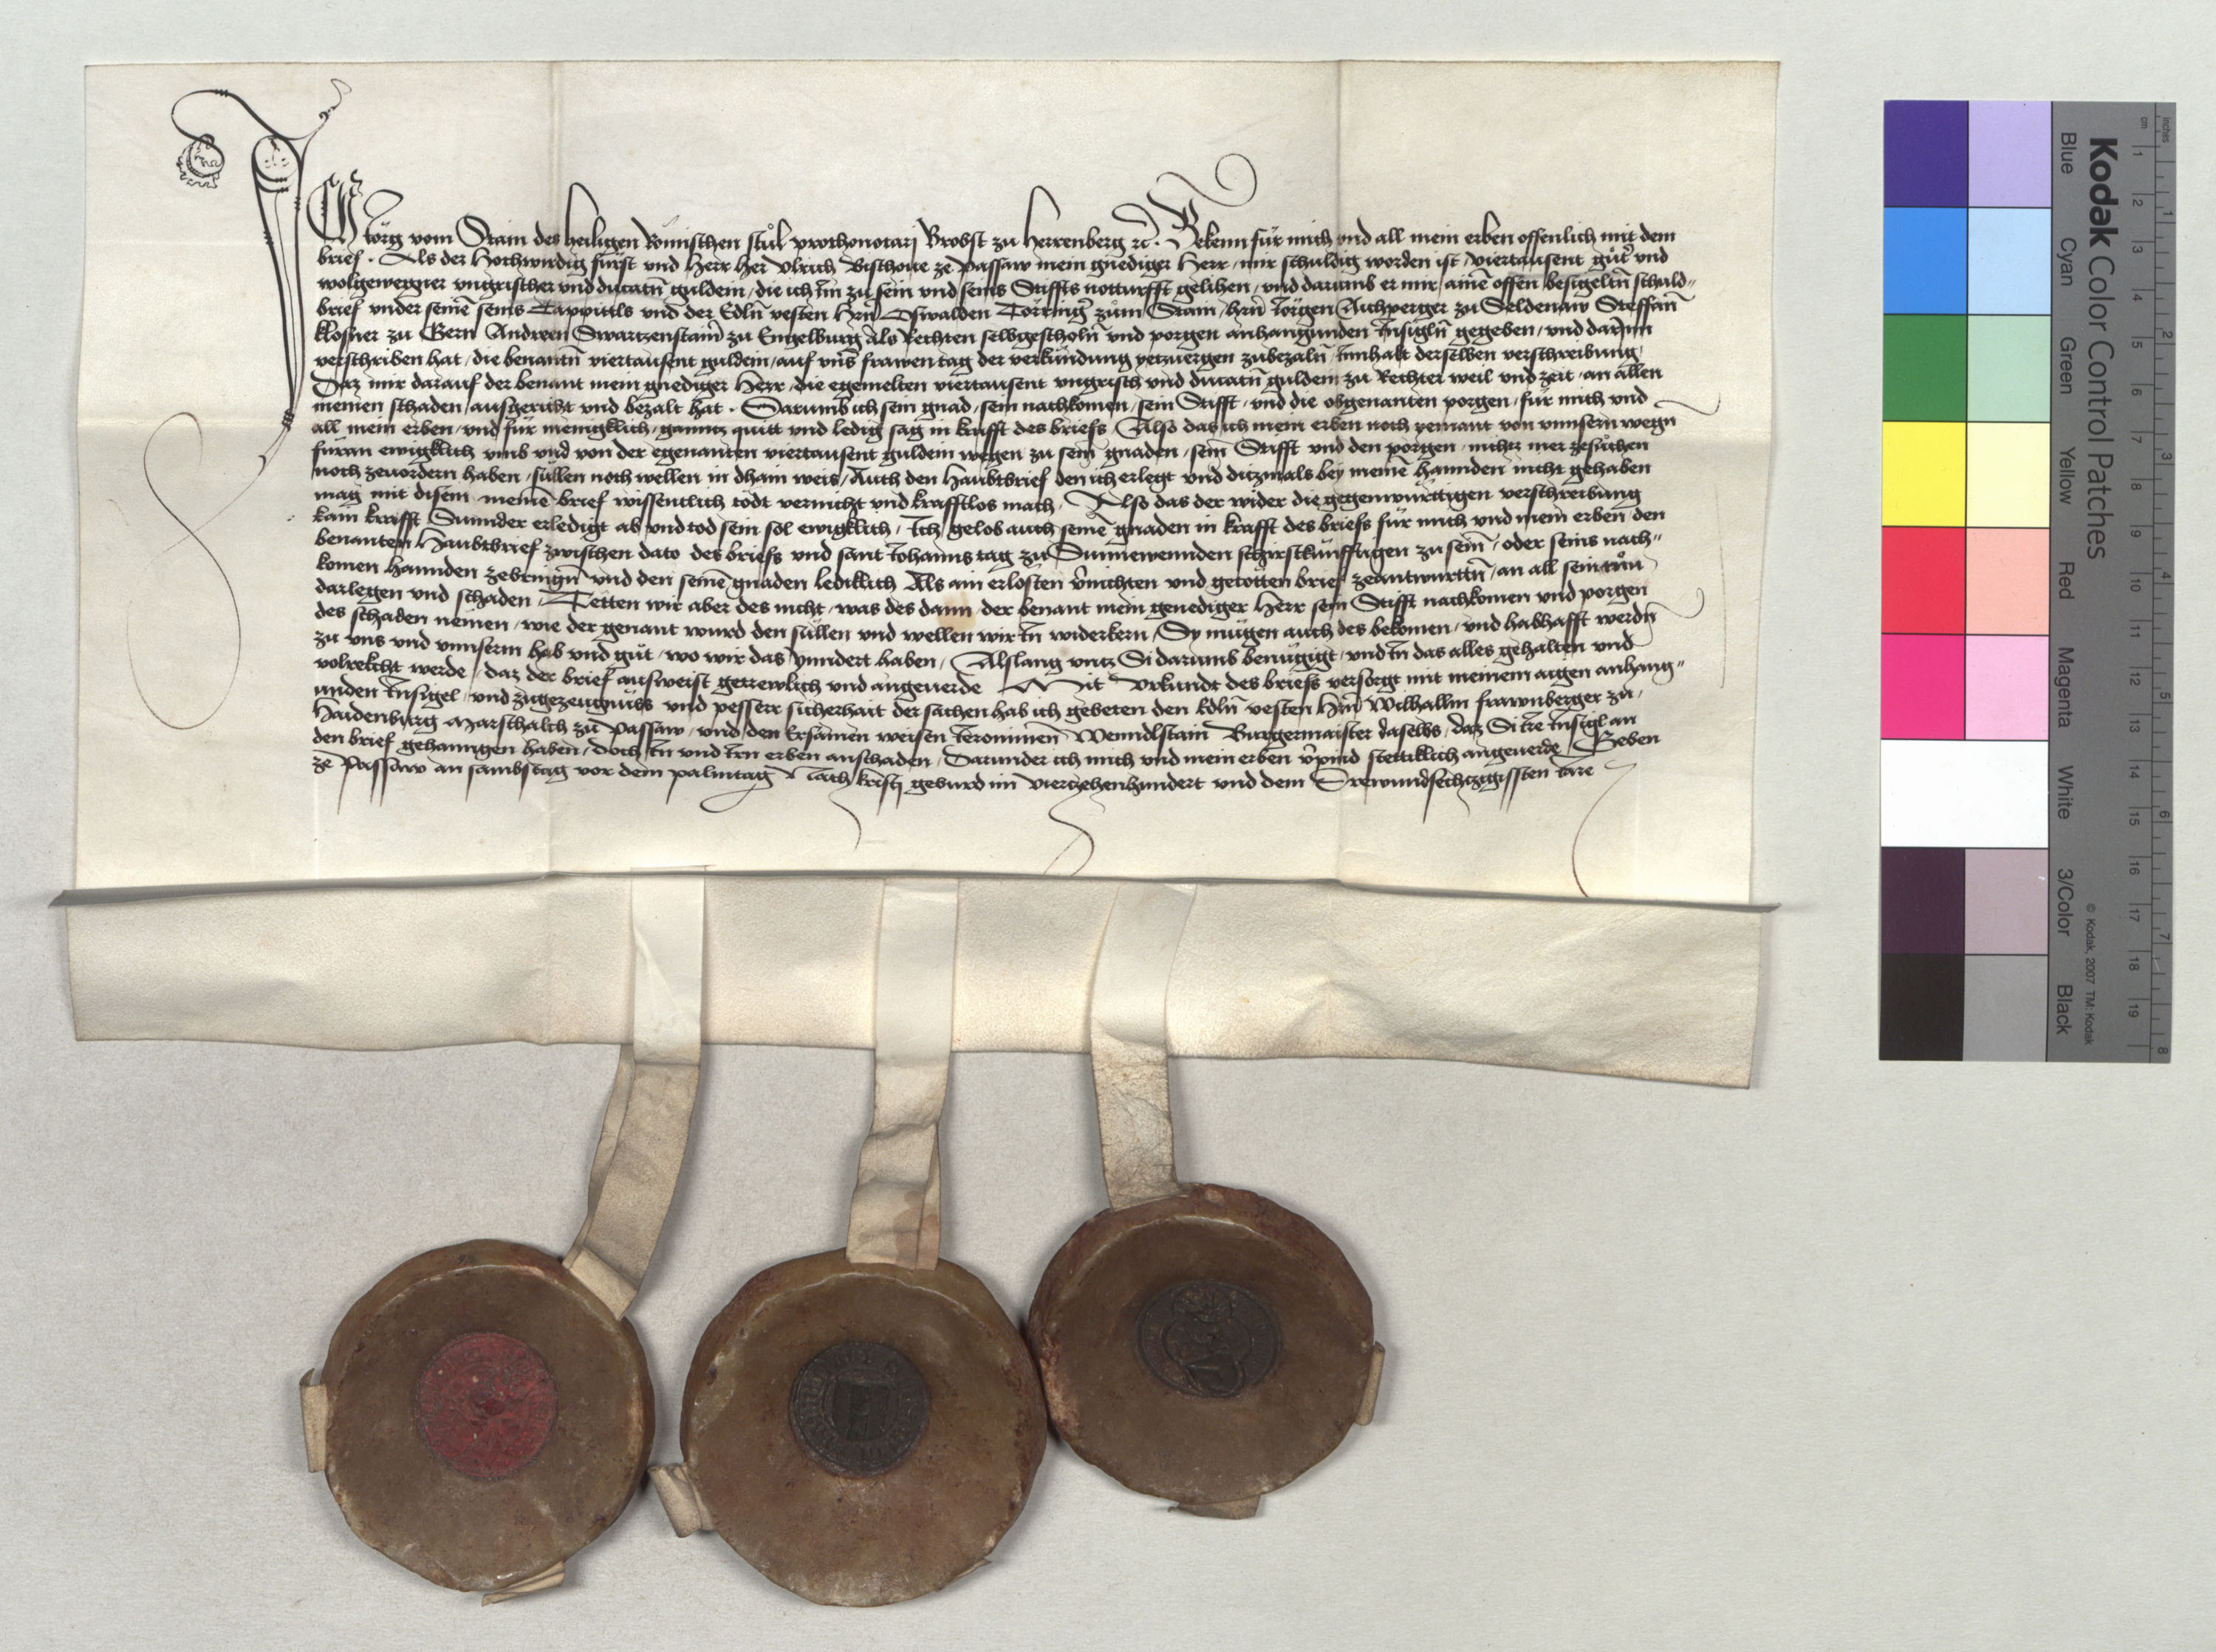 Ich Jorg vom Stain des heiligen Römischen stůl prothonotarj Brobst zu Herrenberg ꝛc. Bekenn für mich vnd all mein erben offenlich mit dem
brief. Als der Hochwirdig fürst vnd Herr her Vlrich Bischoue ze Passaw mein gnediger Herr, mir schuldig worden ist, viertausent gůt vnd
wolgewegner vngrischer vnd ducatn̄ guldein, die ich Im zu sein vnd seins Stiffts notturfft gelihen, vnd darumb er mir, ainē offen besigeltn̄ schuld-
brief vnder seinē seins Cappittls vnd der Edln̄ vesten Hrn̄ Oswalden Törring zům Stain, hrn̄ Jörgen Aichperger zu Seldenaw Steffan̄
klosner zu Gern Andreen Swartzenstain̄ zu Engelburg Als Rechten selbgescholn̄ vnd porgen anhangunden Insigln̄ gegeben, vnd darJnn
verschriben hat, die benantn̄ viertausent guldein, auf vn̄s frawen tag der verkündung yetzuergen zubezaln̄, Innhalt derselben verschreibung,
Daz mir darauf der benant mein gnediger Herr, die egemelten viertausent vngrisch vnd ducatn̄ guldein zu Rechter weil vnd zeit, an allen
meinen schaden, ausgericht vnd bezalt hat. Darumb ich sein gnad, sein nachkomen, sein Stifft, vnd die obgenanten porgen, für mich vnd
all mein erben, vnd für menigklich, ganntz quitt vnd ledig sag in krafft des briefs, Also das ich mein erben noch yemant von vnnsern wegn̄
füran ewigklich vmb vnd von der egenanten viertausent guldein wegen zu sein̄ gnaden, sein̄ Stifft vnd den porgen, nichtz mer zesůchen
noch zeuordern haben, süllen noch wellen in dhain weis, Auch den Haubtbrief den ich erlegt vnd ditzmals bey meinē hannden nicht gehaben
mag mit disem meinē brief wissentlich tödt vernicht vnd krafftlos mach, Also das der wider die gegenwürttigen verschreibung
kain krafft Sunnder erledigt ab vnd tod sein sol ewigklich, Ich gelob auch seinē gnaden in krafft des briefs für mich vnd mein erben den
benanten Haubtbrief zwischen dato des briefs vnd sant Johanns tag zu Sunnewennden schirstkünfftigen zu sein̄, oder seins nach-
komen hannden zebringn̄ vnd den seinē gnaden ledigklich Als ain erlosten v̄nichten vnd getötten brief zeantwurttn̄, an all sein můe
darlegen vnd schaden, Tetten wir aber des nicht, was des dann der benant mein genediger Herr sein Stifft nachkomen vnd porgen
des schaden nemen, wie der genant wurd den süllen vnd wellen wir In̄ widerkern, Sy mügen auch des bekomen, vnd habhafft werdn̄
zu vns vnd vnnserm hab vnd gůt, wo wir das ynndert haben, Alslang vntz Si darumb benügigt, vnd In̄ das alles gehalten vnd
volrekcht werde, daz der brief ausweist getrewlich vnd angeuerde Mit Vrkundt des briefs versorgt mit meinem aigen anhang-
unden Insigel, vnd zugezeugnüss vnd pesserr sicherhait der sachen hab ich gebeten den Edln̄ vesten Hrn̄ Wilhallm frawnberger zu,
Haidenburg Marschalch zu Passaw, vnd den Ersamen weisen Jeronimen̄ Wenndlstain̄ Burgermaister daselbs, daz Si Ire Insigl an
den brief gehanngen haben, doch In vnd Irn erben anschaden, Darunder ich mich vnd mein erben v̄pind stettiklich angeuerde, Geben
ze Passaw an sambstag vor dem palmtag Nach kristj geburd im Vierzehenhundert vnd dem Drewundsechtzigissten Jare
Kodak Color Control Patches
Blue Cyan Green Yellow Red Magenta White 3/Color Black
© Kodak, 2007 TM: Kodak
cm 1 2 3 4 5 6 7 8 9 10 11 12 13 14 15 16 17 18 19
inches 1 2 3 4 5 6 7 8